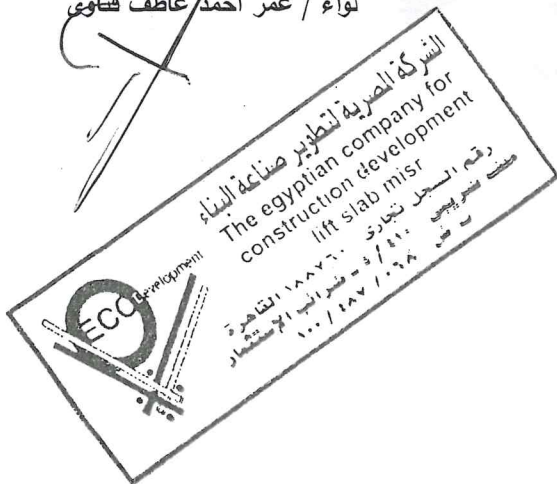 لواء / عمر احمد عاطف
الشركة المصرية لتطوير صناعة البناء
The egyptian company for
construction development
lift slab misr
رقم السجل تجارى ١٨٨٧٦٠ القاهرة
ملف ضريبى ٤١٠ / ٥ - ضرائب الإستثمار
ب ض ٠٦٨ / ٤٨٧ / ١٠٠
ECO Development